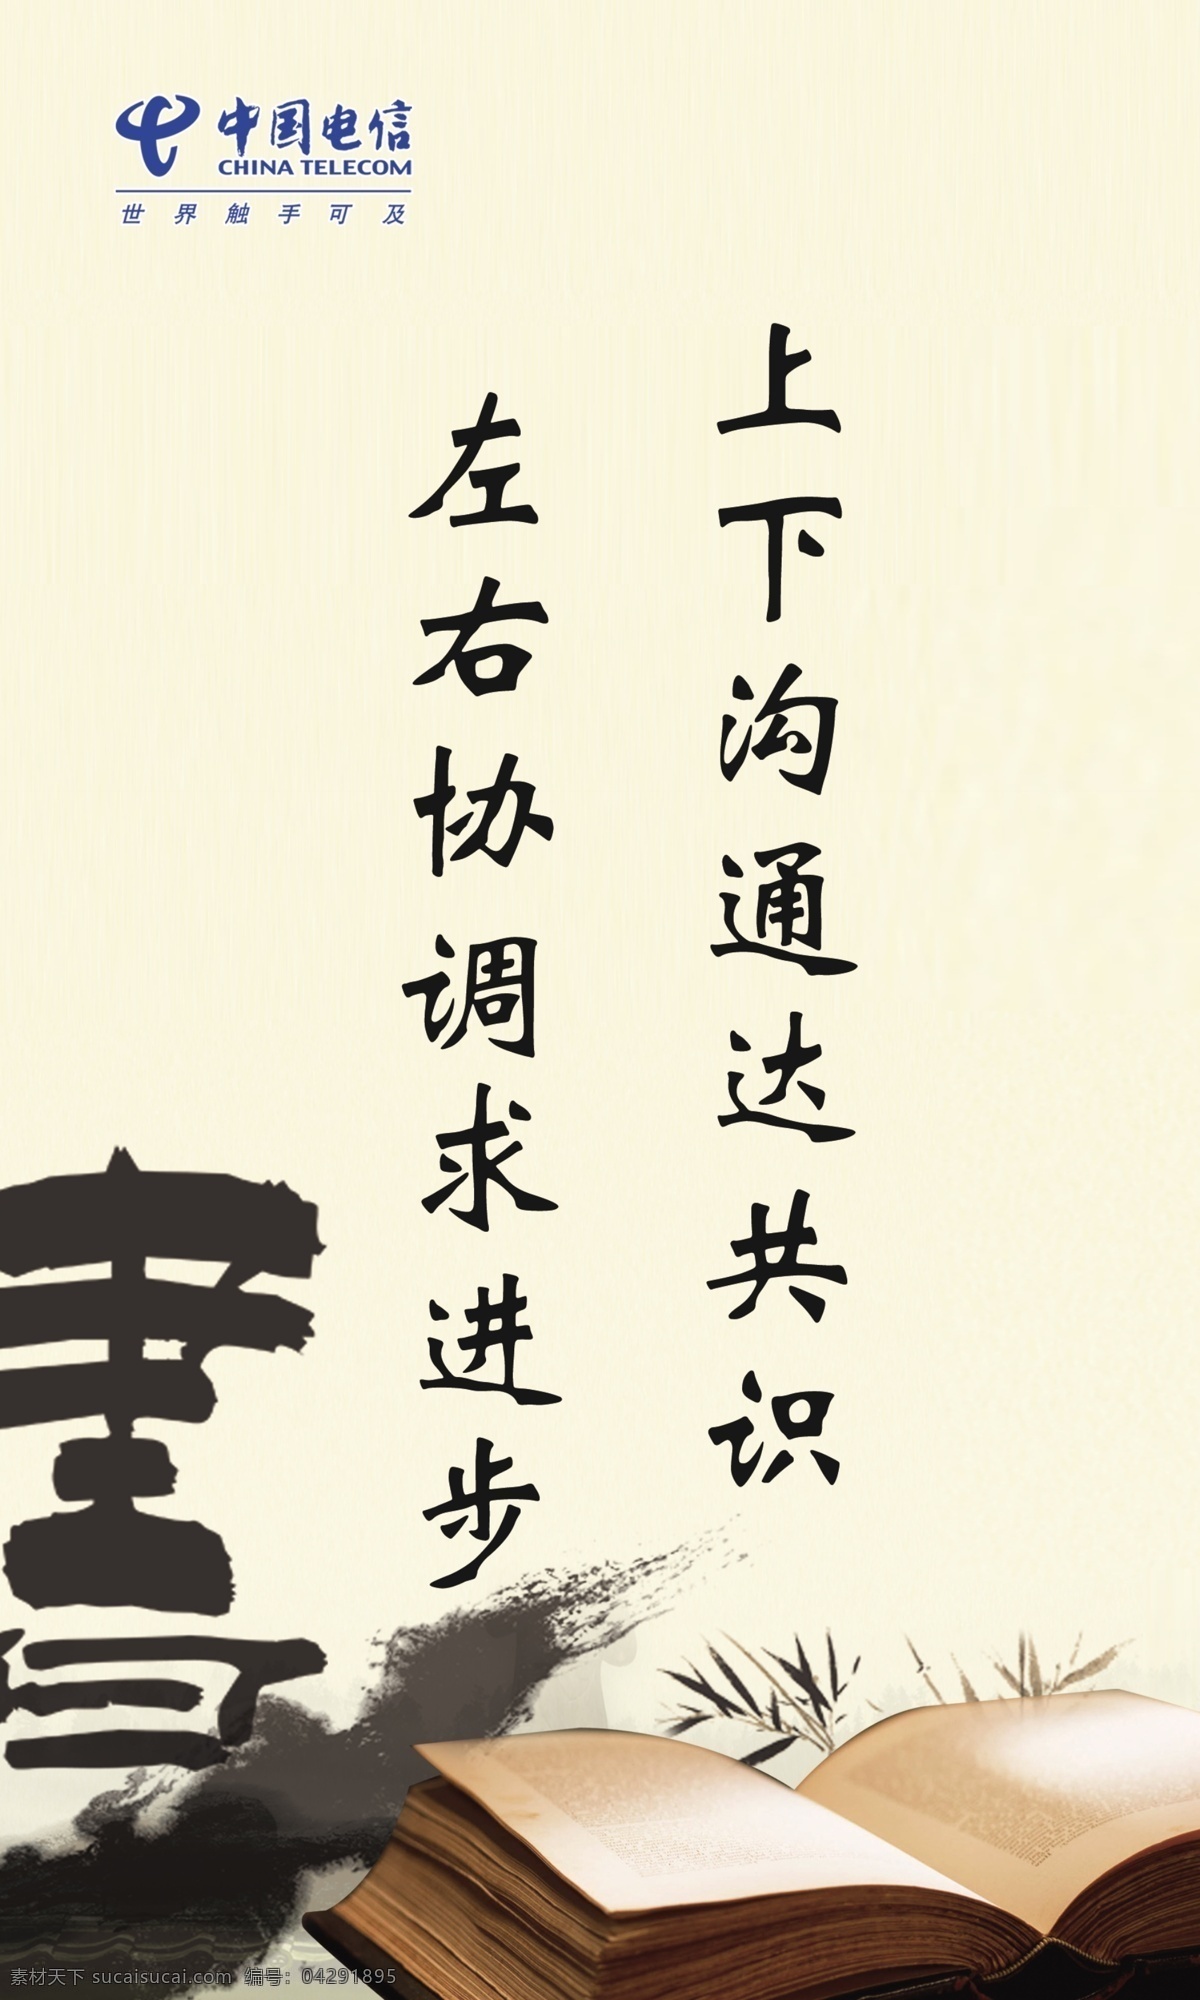 中国电信
CHINA TELECOM
世界触手可及
上下沟通达共识
左右协调求进步
書
素材天下 sucaisucai.com 编号：04291895